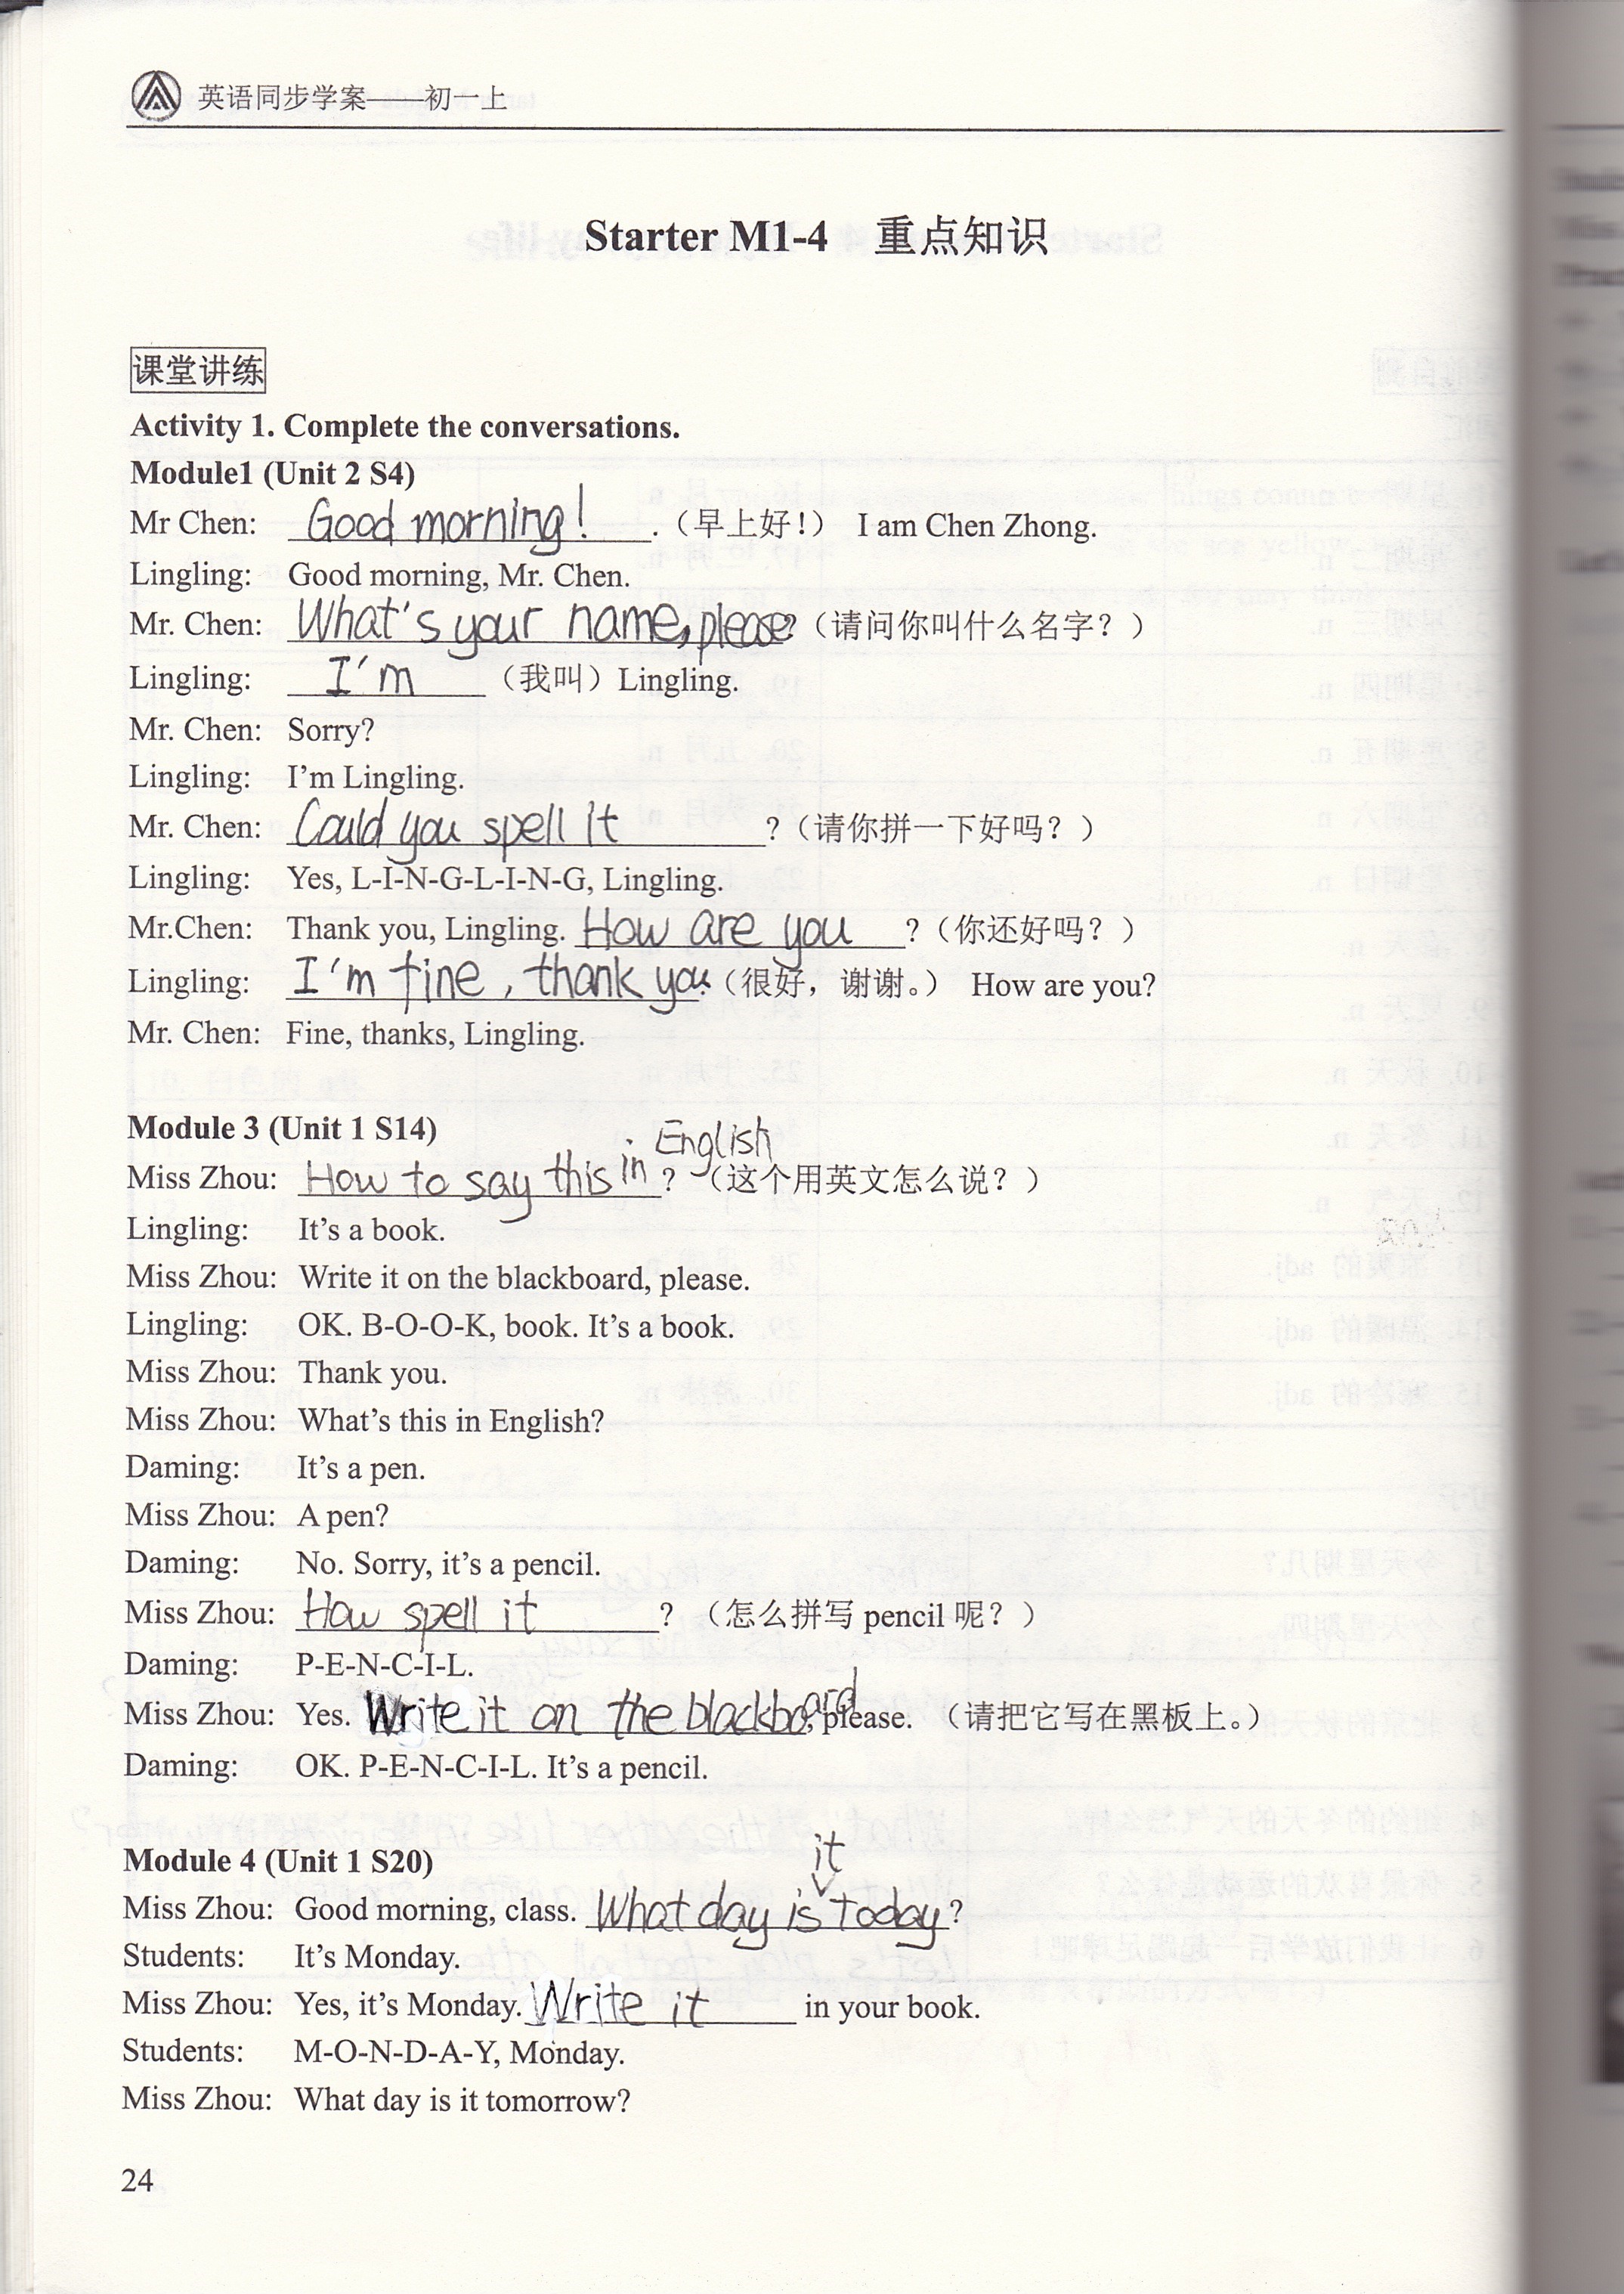 英语同步学案——初一上
Starter M1-4 重点知识
课堂讲练
Activity 1. Complete the conversations.
Module1 (Unit 2 S4)
Mr Chen: Good morning! .（早上好！） I am Chen Zhong.
Lingling: Good morning, Mr. Chen.
Mr. Chen: What's your name, please?（请问你叫什么名字？）
Lingling: I'm （我叫）Lingling.
Mr. Chen: Sorry?
Lingling: I'm Lingling.
Mr. Chen: Could you spell it ?（请你拼一下好吗？）
Lingling: Yes, L-I-N-G-L-I-N-G, Lingling.
Mr.Chen: Thank you, Lingling. How are you ?（你还好吗？）
Lingling: I'm fine, thank you.（很好，谢谢。） How are you?
Mr. Chen: Fine, thanks, Lingling.
Module 3 (Unit 1 S14)
Miss Zhou: How to say this in English ? （这个用英文怎么说？）
Lingling: It's a book.
Miss Zhou: Write it on the blackboard, please.
Lingling: OK. B-O-O-K, book. It's a book.
Miss Zhou: Thank you.
Miss Zhou: What's this in English?
Daming: It's a pen.
Miss Zhou: A pen?
Daming: No. Sorry, it's a pencil.
Miss Zhou: How spell it ? （怎么拼写 pencil 呢？）
Daming: P-E-N-C-I-L.
Miss Zhou: Yes. Write it on the blackboard, please. （请把它写在黑板上。）
Daming: OK. P-E-N-C-I-L. It's a pencil.
Module 4 (Unit 1 S20)
Miss Zhou: Good morning, class. What day is it today?
Students: It's Monday.
Miss Zhou: Yes, it's Monday. Write it in your book.
Students: M-O-N-D-A-Y, Monday.
Miss Zhou: What day is it tomorrow?
24